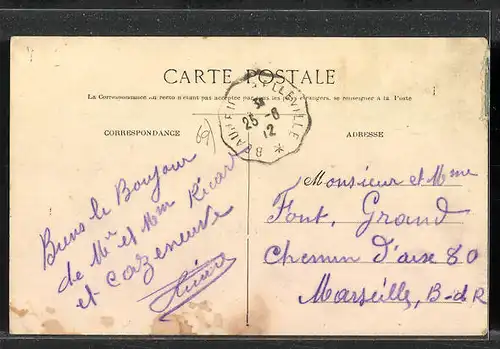 CARTE POSTALE
La Correspondance au recto n'étant pas acceptée par tous les pays étrangers, se renseigner à la Poste
CORRESPONDANCE
69
25-8
12
ADRESSE
Biens le Bonjour
de Mr et Mme Ricart
et Cazeneuve
Monsieur et Mme
Font, Grand
Chemin d'aix 80
Marseille, B-d-R